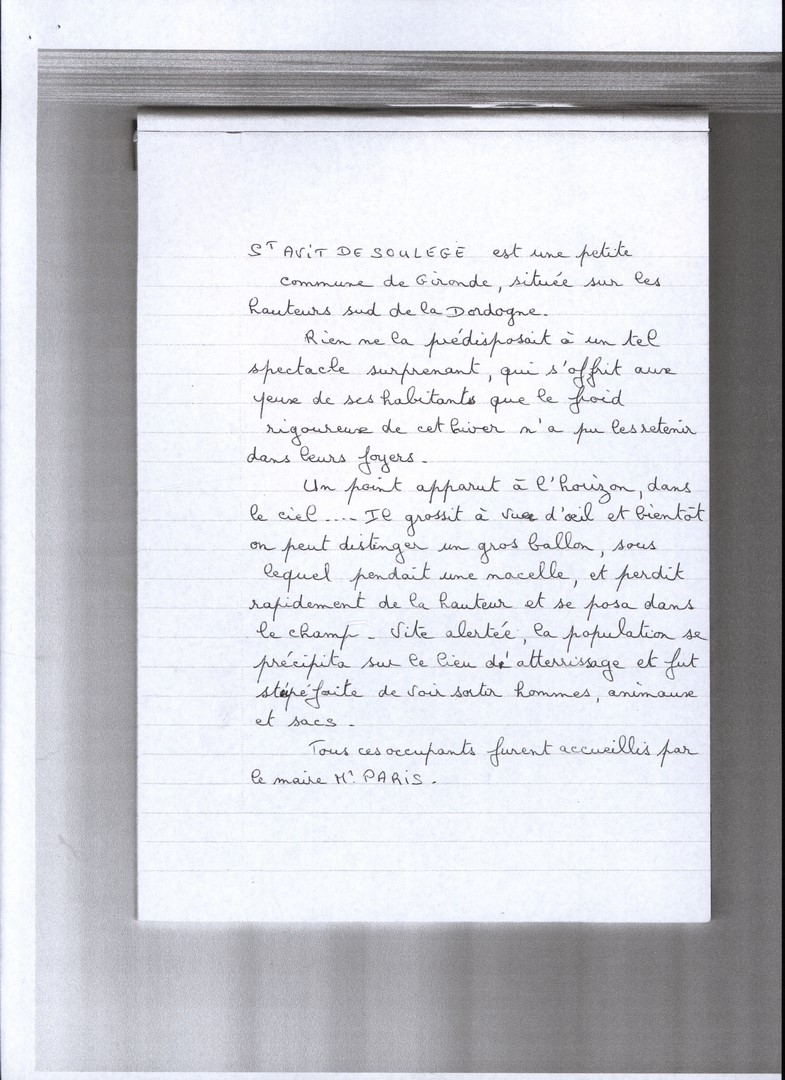 ST AVIT DE SOULEGE est une petite
commune de Gironde, située sur les
hauteurs sud de la Dordogne.
Rien ne la prédisposait à un tel
spectacle surprenant, qui s'offrit aux
yeux de ses habitants que le froid
rigoureux de cet hiver n'a pu les retenir
dans leurs foyers.
Un point apparut à l'horizon, dans
le ciel.... Il grossit à vue d'œil et bientôt
on peut distinger un gros ballon, sous
lequel pendait une nacelle, et perdit
rapidement de la hauteur et se posa dans
le champ. Vite alertée, la population se
précipita sur le lieu d'atterrissage et fut
stupéfaite de voir sortir hommes, animaux
et sacs.
Tous ces occupants furent accueillis par
le maire Mr. PARIS.